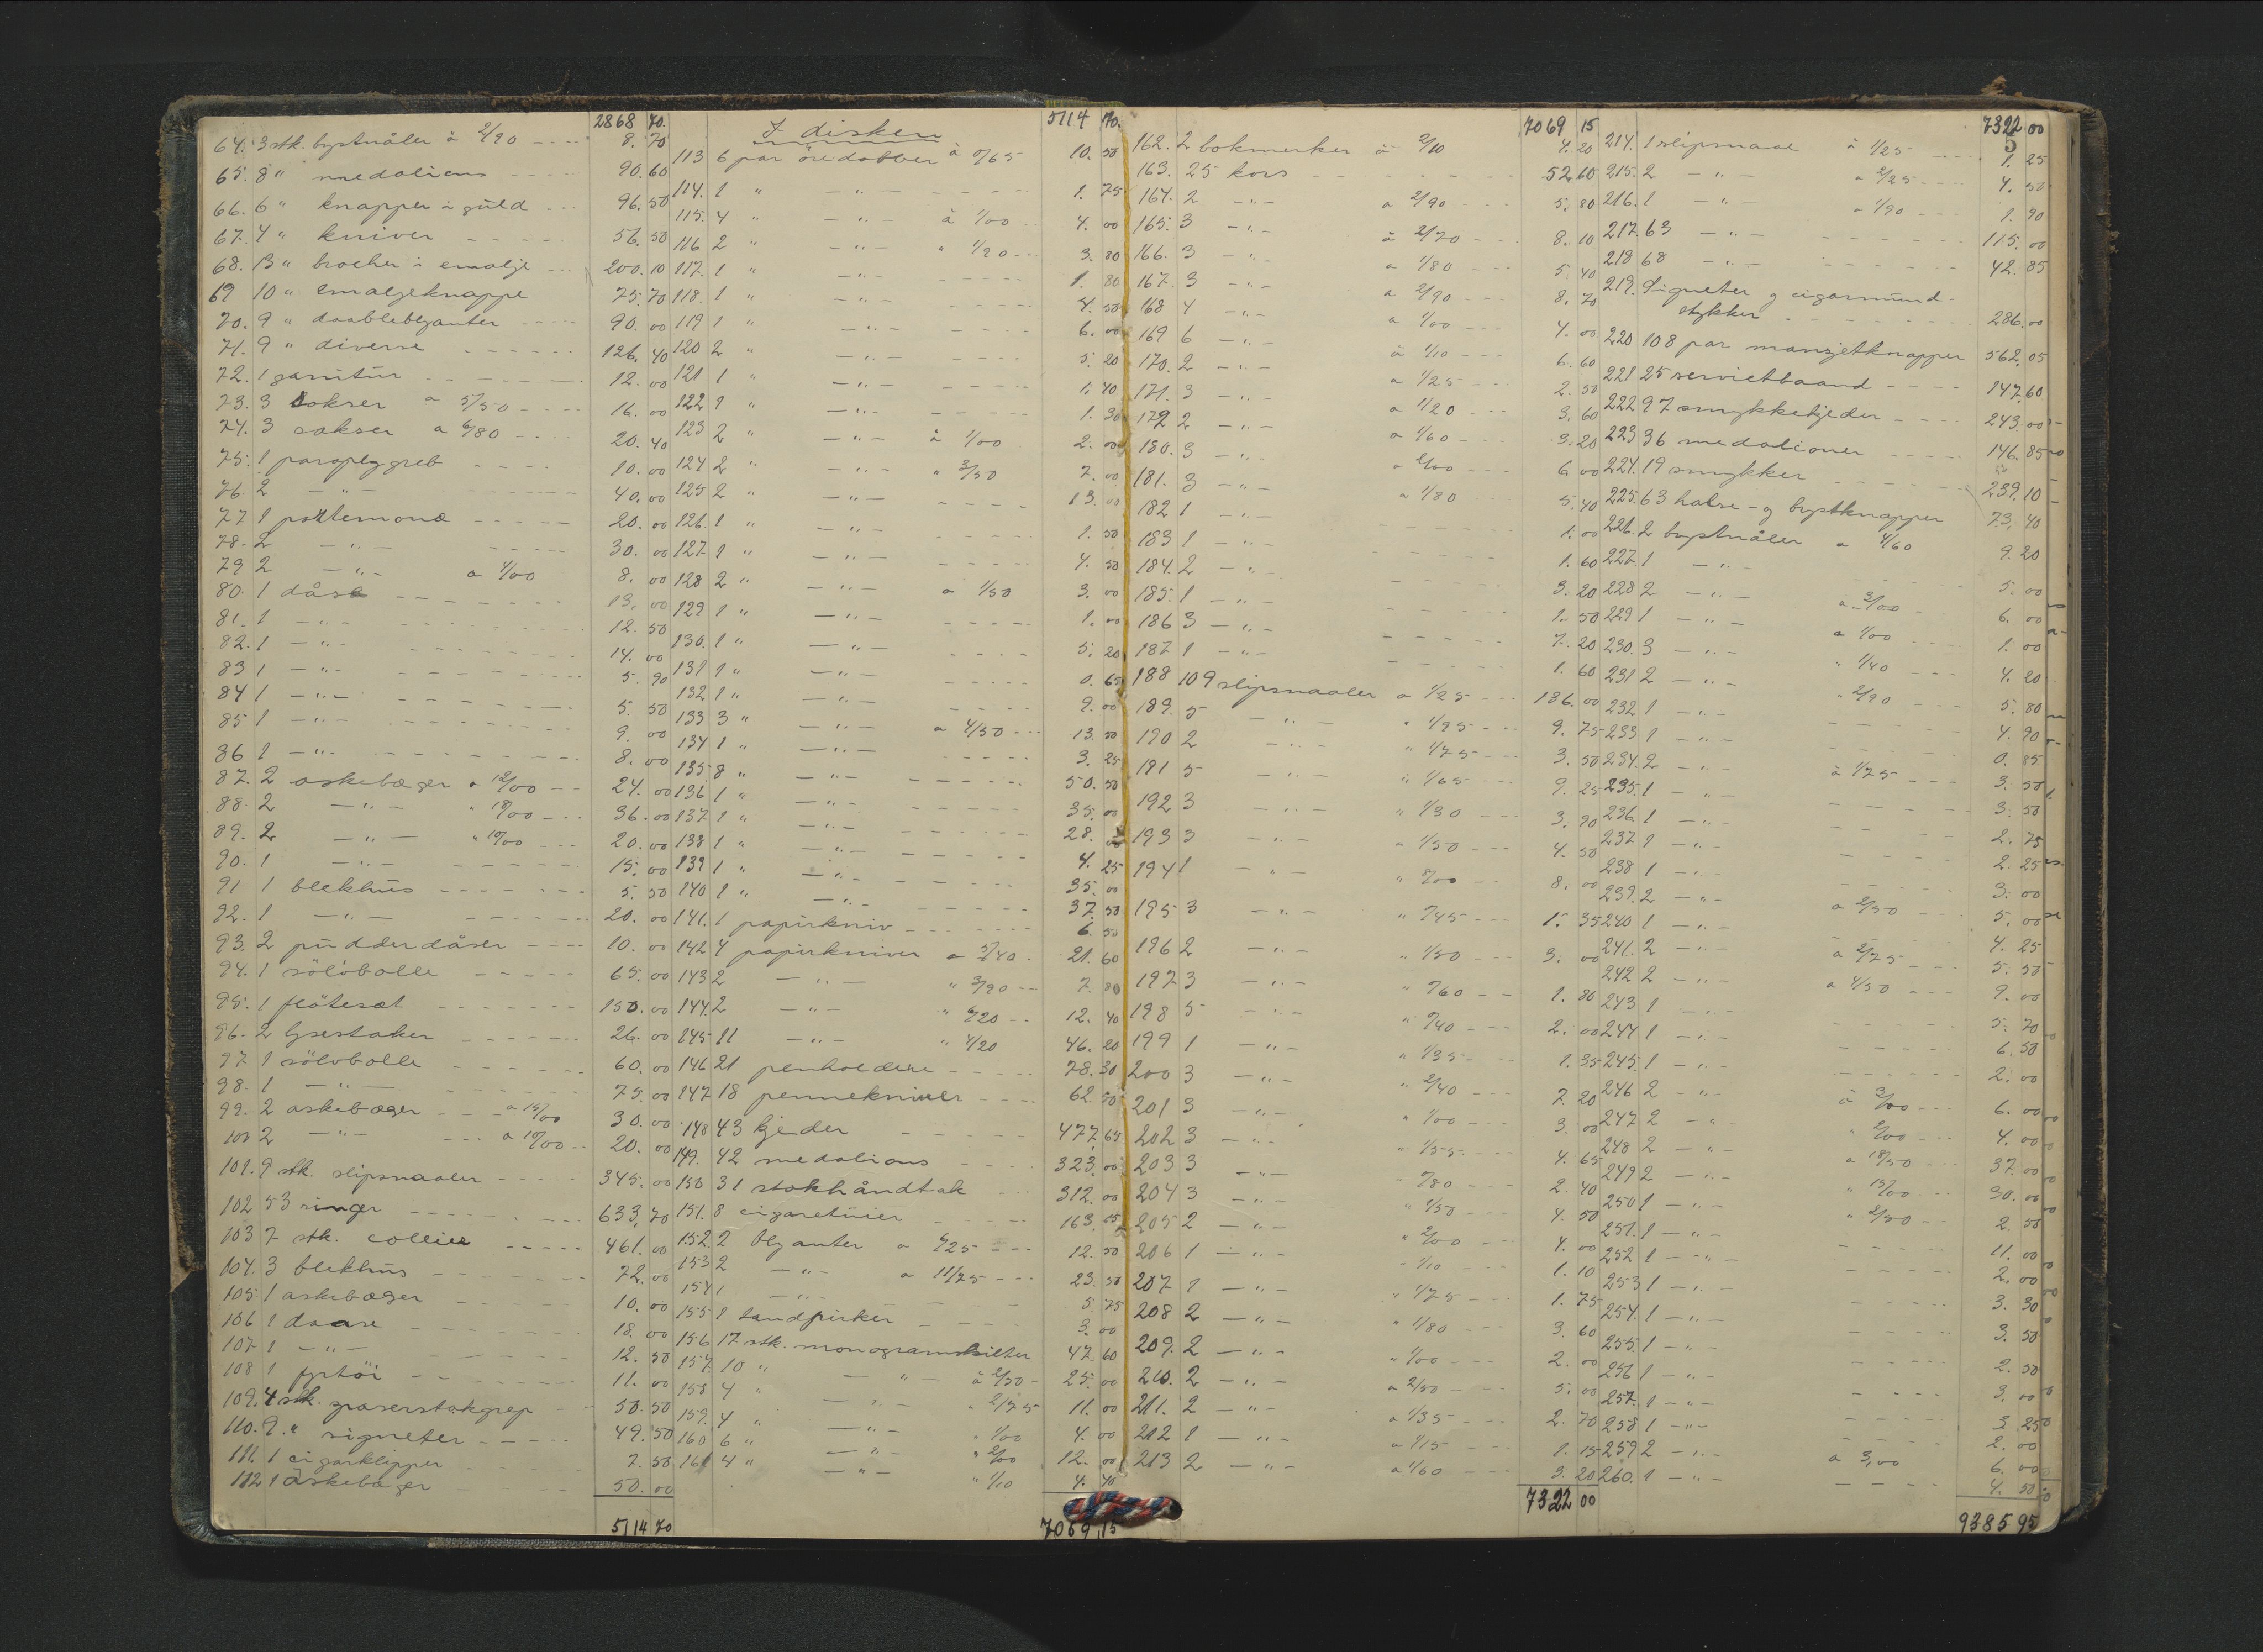 2868 70.
64. 3 stk. brystnåler à 2/90 ---- 8. 70
65. 8 " medalions ---- 90. 60
66. 6 " knapper i guld --- 96. 50
67. 4 " kniver ----- 56. 50
68. 13 " brocher i emalje --- 200. 10
69 10 " emaljeknappe 75. 70
70. 9 " doubleblyanter ---- 90. 00
71. 9 " diverse ------ 126. 40
72. 1 garnitur ------ 12. 00
73. 3 sakser a 5/50 ---- 16. 00
74. 3 sakser a 6/80 ---- 20. 40
75. 1 paraplygreb ---- 10. 00
76. 2 -"- ------ 40. 00
77 1 portemoné ----- 20. 00
78. 2 -"- ---- 30. 00
79 2 -"- a 4/00 8. 00
80. 1 dåse ------ 13. 00
81. 1 -"- ------ 12. 50
82. 1 -"- ------ 14. 00
83 1 -"- ------ 5. 90
84 1 -"- ------ 5. 50
85 1 -"- ------ 9. 00
86 1 -"- ------ 8. 00
87. 2 askebæger a 12/00 -- 24. 00
88. 2 -"- " 18/00 --- 36. 00
89. 2 -"- " 10/00 --- 20. 00
90. 1 -"- ------ 15. 00
91 1 blekhus ------ 5. 50
92. 1 -"- ------ 20. 00
93. 2 pudderdåser ---- 10. 00
94. 1 sölvbolle ----- 65. 00
95. 1 flötesæt ------ 150. 00
96. 2 lysestaker ------ 26. 00
97 1 sölvbolle ------ 60. 00
98. 1 -"- ------ 75. 00
99. 2 askebæger --- a 15/00 30. 00
100 2 -"- --- a 10/00 -- 20. 00
101. 9 stk. slipsnaaler ----- 345. 00
102 53 ringer ------ 633. 70
103 7 stk. collier ----- 461. 00
104. 3 blekhus ------ 72. 00
105 1 askebæger ----- 10. 00
106 1 daase ------ 18. 00
107 1 -"- ------ 12. 50
108 1 fyrtöi ------ 11. 00
109. 4 stk. spaserstokgrep -- 50. 50
110. 9 " signeter ----- 49. 50
111. 1 cigarklipper ---- 7. 50
112 1 askebæger ---- 50. 00
5114 70
5114 70.
I disken
113 6 par öredobber à 0/65 10. 50
114. 1 " -"- ---- 1. 75
115. 4 " -"- à 1/00 4. 00
116 2 " -"- " 1/90 --- 3. 80
117. 1 " -"- ---- 1. 80
118. 1 " -"- ---- 4. 50
119 1 " -"- ---- 6. 00
120 2 " -"- ---- 5. 20
121 1 " -"- ---- 1. 40
122 1 " -"- ---- 1. 30
123 2 " -"- à 1/00 2. 00
124 2 " -"- " 3/50 7. 00
125 2 " -"- ---- 13. 00
126. 1 " -"- ---- 1. 50
127 1 " -"- ---- 4. 50
128 2 " -"- a 1/50 3. 00
129 1 " -"- ---- 1. 00
130. 1 " -"- ---- 5. 20
131 1 " -"- ---- 0. 65
132 1 " -"- ---- 9. 00
133 3 " -"- a 4/50 --- 13. 50
134 1 " -"- 3. 25
135 8 " -"- ---- 50. 50
136 1 " -"- ---- 35. 00
137 1 " -"- ---- 28.
138 1 " -"- ---- 4. 25
139 1 " -"- ---- 35. 00
140 1 " -"- ---- 37. 50
141. 1 papirkniv ------ 6. 50
142 4 papirkniver a 5/40 21. 60
143 2 -"- " 3/90 -- 7. 80
144. 2 -"- " 6/20 -- 12. 40
145 11 -"- " 4/20 46. 20
146 21 penholdere ---- 78. 30
147 18 pennekniver ---- 62. 50
148 43 kjeder ------ 477. 65
149. 42 medalions ---- 323. 00
150 31 stokhåndtak --- 312. 00
151. 8 cigaretuier ---- 163. 15
152. 2 blyanter a 6/25 --- 12. 50
153 2 -"- a 11/75 --- 23. 50
154 1 -"- ---- 5. 75
155 1 tandpirker ---- 3. 00
156 17 stk. monogramskilter 47. 60
157. 10 " -"- à 2/50 - 25. 00
158 4 " -"- " 2/75 11. 00
159. 4 " -"- " 1/00 4. 00
160 6 " -"- " 2/00 12. 00
161 4 " -"- " 1/10 4. 40
7069 15
7069 15
162. 2 bokmerker à 2/10 4. 20
163. 25 kors ------ 52 60
164. 2 -"- a 2/90 --- 5. 80
165. 3 -"- à 2/70 --- 8. 10
166. 3 -"- a 1/80 --- 5. 40
167. 3 -"- a 2/90 --- 8. 70
168 4 -"- a 1/00 --- 4. 00
169 6 -"- à 1/10 --- 6. 60
170. 2 -"- a 1/25 --- 2. 50
171. 3 -"- a 1/20 --- 3. 60
179 2 -"- a 1/60 --- 3. 20
180. 3 -"- a 2/00 --- 6. 00
181. 3 -"- a 1/80 5. 40
182 1 -"- ---- 1. 00
183 1 -"- ---- 1. 60
184. 2 -"- ---- 3. 20
185. 1 -"- ---- 1. 50
186 3 -"- ---- 7. 20
187 1 -"- ---- 1. 60
188 109 slipsnaaler a 1/25 --- 136. 00
189. 5 -"- " 1/95 --- 9. 75
190 2 -"- " 1/75 --- 3. 50
191 5 -"- " 1/65 --- 9. 25
192 3 -"- " 1/30 --- 3. 90
193 3 -"- a 1/50 --- 4. 50
194 1 -"- " 8/00 --- 8. 00
195 3 -"- " 0/45 --- 1. 35
196 2 -"- " 1/50 --- 3. 00
197 3 -"- " 0/60 -- 1. 80
198 5 -"- " 0/40 --- 2. 00
199 1 -"- " 1/35 --- 1. 35
200 3 -"- " 2/40 --- 7. 20
201 3 -"- " 1/00 --- 3. 00
202 3 -"- " 1/55 --- 4. 65
203 3 -"- " 0/80 --- 2. 40
204 3 -"- " 1/50 --- 4. 50
205 2 -"- " 2/00 --- 4. 00
206 1 -"- " 1/10 --- 1. 10
207 1 -"- " 1/75 --- 1. 75
208 2 -"- " 1/80 --- 3. 60
209. 2 -"- " 1/00 --- 2. 00
210. 2 -"- a 2/50 --- 5. 00
211. 2 -"- a 1/35 --- 2. 70
212 1 -"- a 1/15 --- 1. 15
213 2 -"- a 1/60 --- 3. 20
7322 00
7322 00
5
214. 1 slipsnaal à 1/25 --- 1. 25
215. 2 -"- a 2/25 --- 4. 50
216. 1 -"- a 1/90 --- 1. 90
217. 63 -"- ------ 115. 00
218 68 -"- ------ 42. 85
219. Signeter og cigarmund-
stykker ------ 286. 00
220 108 par mansjetknapper 562. 05
221 25 servietbaand ---- 147. 60
222 97 smykkekjeder --- 243. 00
223 36 medalioner ---- 146. 85
224. 19 smykker ------ 239. 10
225. 63 halse- og brystknapper 73. 40
226. 2 brystnåler a 4/60 9. 20
227. 1 -"- ---- 5. 00
228 2 -"- a 3/00 - 6. 00
229 1 -"- a 1/00 --- 1. 00
230. 3 -"- " 1/40 --- 4. 20
231 2 -"- " 2/90 --- 5. 80
232 1 -"- ---- 4. 90
233 1 -"- ---- 0. 85
234. 2 -"- à 1/75 --- 3. 50
235. 1 -"- ---- 3. 50
236. 1 -"- ---- 2. 75
237 1 -"- ---- 2. 25
238 1 -"- ---- 3. 00
239. 2 -"- a 2/50 --- 5. 00
240 1 -"- ---- 4. 25
241. 2 -"- a 2/75 --- 5. 50
242 2 -"- a 4/50 --- 9. 00
243 1 -"- ---- 5. 70
244 1 -"- ---- 6. 50
245. 1 -"- ---- 2. 00
246 2 -"- à 3/00 --- 6. 00
247 2 -"- " 2/00 --- 4. 00
248 2 -"- a 18/50 --- 37. 00
249 2 -"- " 15/00 --- 30. 00
250 1 -"- " 2/50 --- 2. 50
251. 1 -"- ---- 11. 00
252 1 -"- ---- 2. 00
253 1 -"- ---- 3. 30
254. 1 -"- ---- 3. 50
255. 1 -"- ---- 2. 50
256 1 -"- ---- 3. 00
257. 1 -"- ---- 3. 25
258 1 -"- ---- 2. 00
259 2 -"- a 3,00 6. 00
260. 1 -"- ---- 4. 50
9385 95